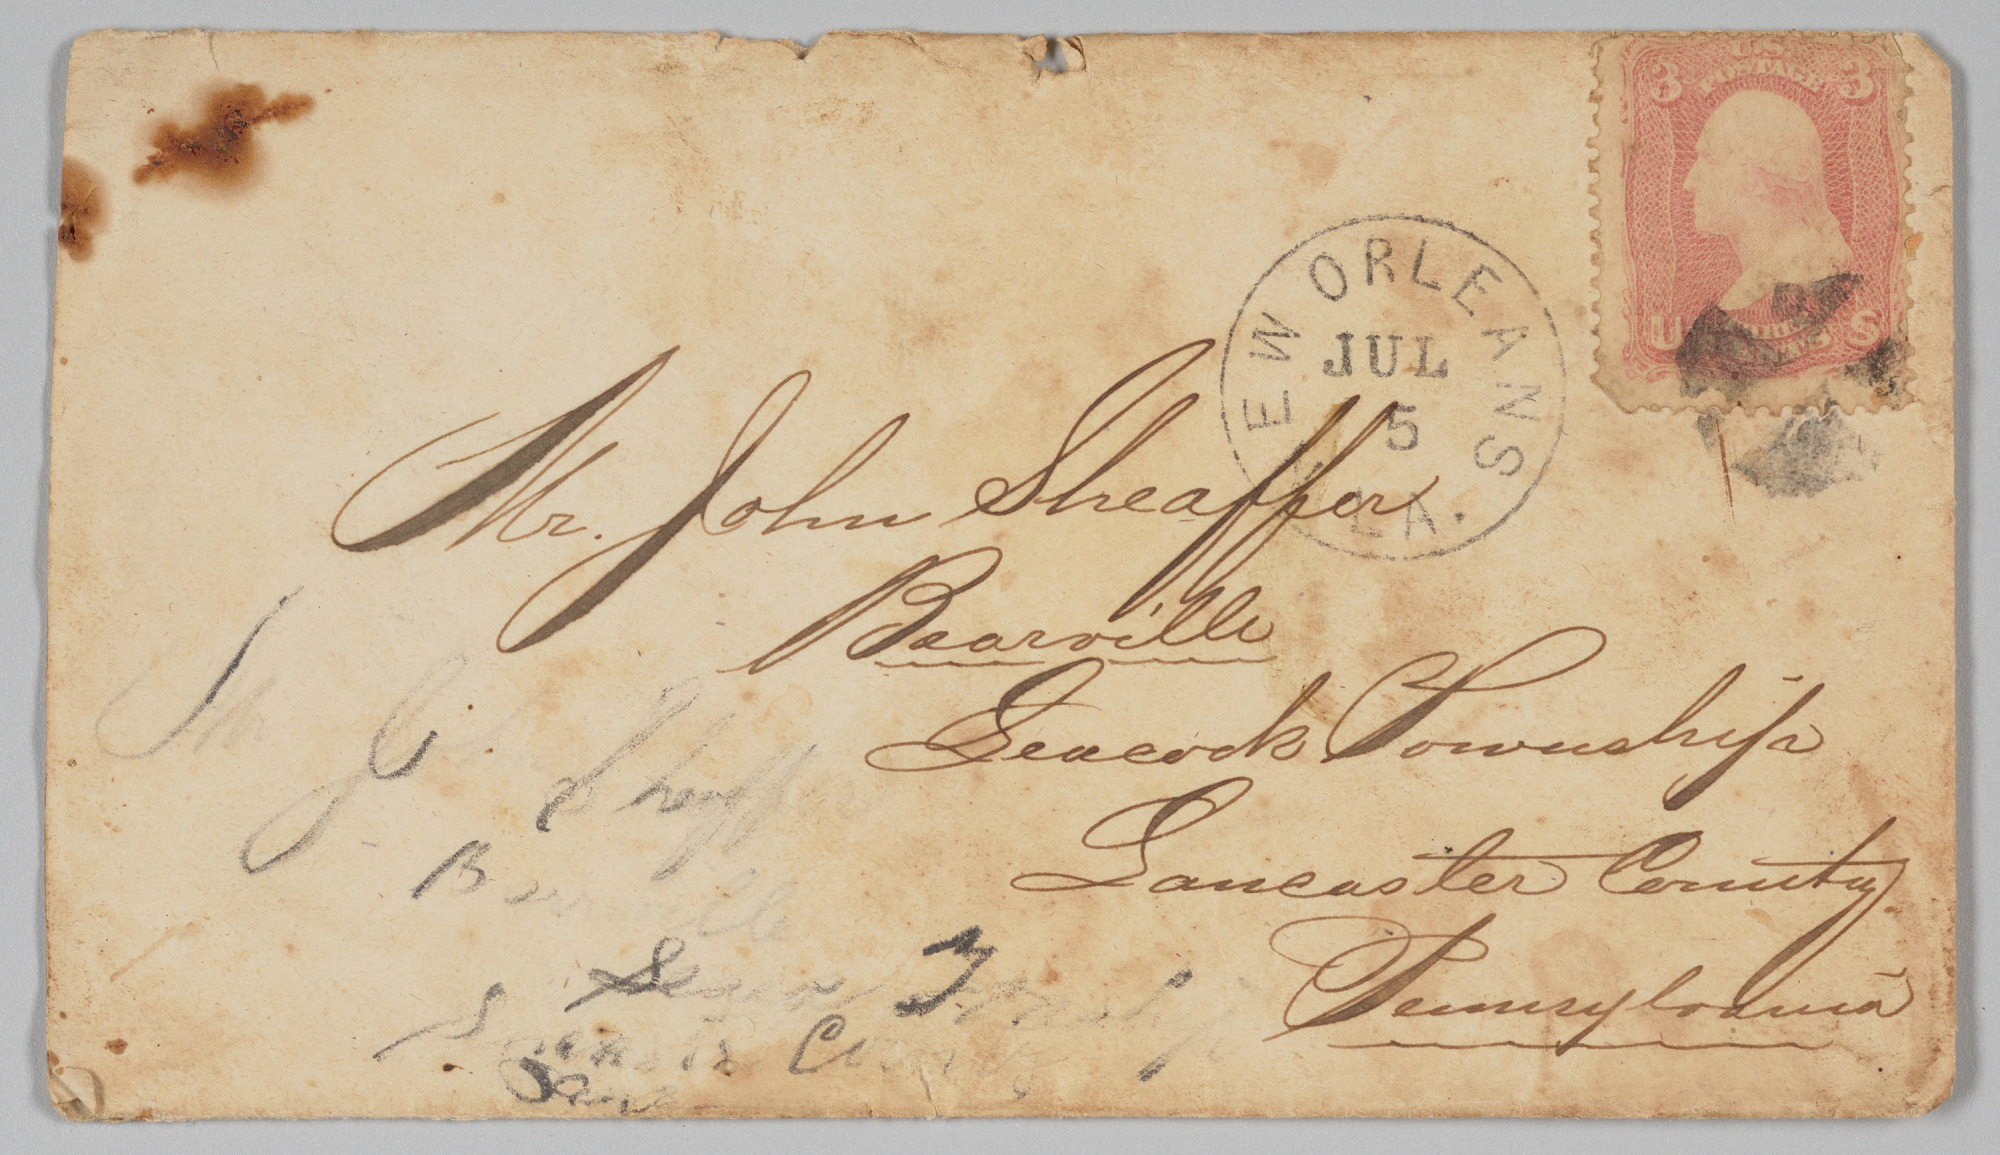 3 US POSTAGE 3
U THREE CENTS S
NEW ORLEANS
JUL
5
LA.
Mr. John Sheaffer
Bearville
Leacock Township
Lancaster County
Pennsylvania
Mr
J
Sheaffer
County